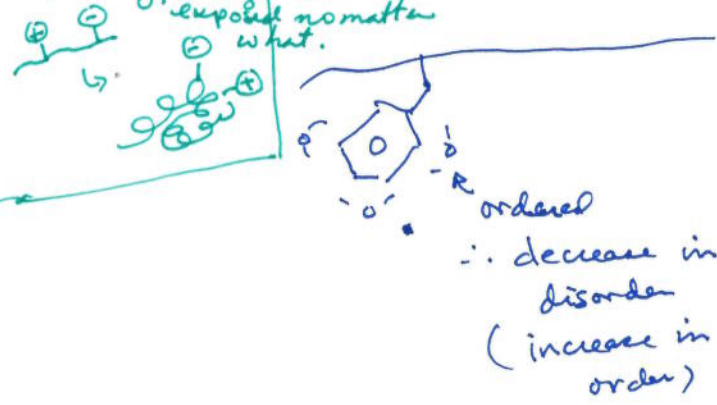 exposed no matter
what.
ordered
∴ decrease in
disorder
(increase in
order)